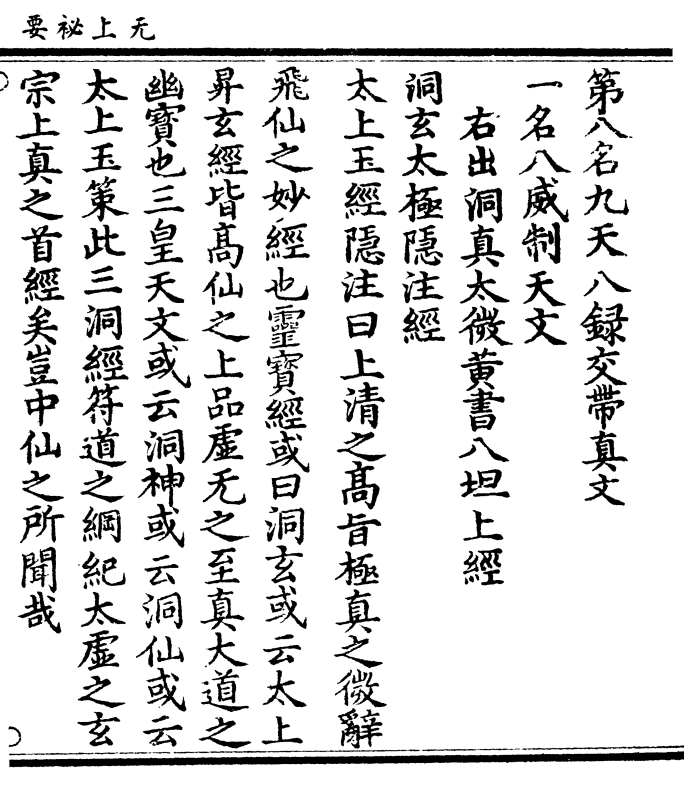 无上祕要
第八名九天八録交帶真文
一名八威制天文
右出洞真太微黃書八坦上經
洞玄太極隱注經
太上玉經隱注曰上清之髙旨極真之微辭
飛仙之妙經也靈寶經或曰洞玄或云太上
昇玄經皆髙仙之上品虚无之至真大道之
幽寶也三皇天文或云洞神或云洞仙或云
太上玉策此三洞經符道之綱紀太虚之玄
宗上真之首經矣豈中仙之所聞哉